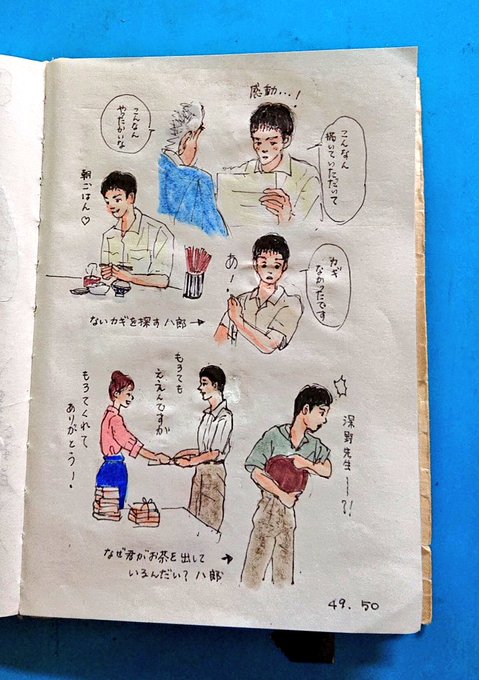 感動…!
こんなん
描いていただいて
こんなん
やったかいな
朝ごはん♡
カギ
なかったです
あー!
ないカギを探す八郎→
もろても
ええんですか
もろてくれて
ありがとうー!
深野先生ー?!
なぜ君がお茶を出して→
いるんだい?八郎
49. 50